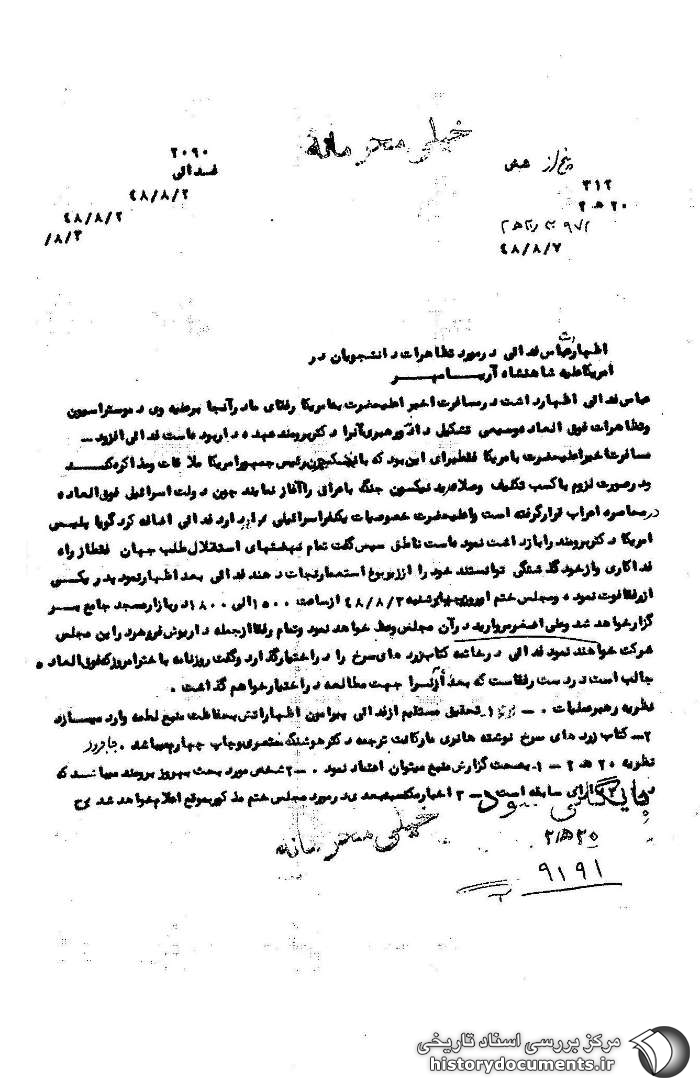 خیلی محرمانه
پنج از شش
۳۱۲
۲۰ ﻫ ۲
۴۸/۸/۷
۲۰۹۰
فدائی
۴۸/۸/۲
۴۸/۸/۲
/۸/۳
اظهارات عباس فدائی در مورد تظاهرات دانشجویان در
امریکا علیه شاهنشاه آریامهر
عباس فدائی اظهار داشت در مسافرت اخیر اعلیحضرت به امریکا رفقای ما در آنجا بر علیه وی دموستراسیون
و تظاهرات فوق العاده وسیعی تشکیل داده و رهبری آنرا دکتر برومند عهده دار بوده است فدائی افزود ــ
مسافرت اخیر اعلیحضرت به امریکا فقط برای این بود که با نیکسون رئیس جمهور امریکا ملاقات و مذاکره کند
و در صورت لزوم با کسب تکلیف و صلاحدید نیکسون جنگ با عراق را آغاز نمایند چون دولت اسرائیل فوق العاده
در محاصره اعراب قرار گرفته است و اعلیحضرت خصوصیات یکنفر اسرائیلی را دارد فدائی اضافه کرد گویا پلیس
امریکا دکتر برومند را بازداشت نموده است ناطق سپس گفت تمام نهضتهای استقلال طلب جهان فقط از راه
فداکاری و از خود گذشتگی توانستند خود را از زیر یوغ استعمار نجات دهند فدائی بعد اظهار نمود پدر یکی
از رفقا فوت نموده و مجلس ختم او روز چهارشنبه ۴۸/۸/۳ از ساعت ۱۵۰۰ الی ۱۸۰۰ در بازار مسجد جامع بر
گزار خواهد شد و علی اصغر مروارید در آن مجلس وعظ خواهد نمود و تمام رفقا از جمله داریوش فروهر در این مجلس
شرکت خواهند نمود فدائی در خاتمه کتاب زرد های سرخ را در اختیار گذارد و گفت روزنامه باختر امروز که فوق العاده
جالب است در دست رفقاست که بعد از آنرا جهت مطالعه در اختیار خواهم گذاشت .
نظریه رهبر عملیات . ــ ۱ـ تحقیق مستقیم از فدائی پیرامون اظهاراتش بحفاظت منبع لطمه وارد میسازد
۲ــ کتاب زرد های سرخ نوشته هانری مارکانت ترجمه دکتر هوشنگ منتصری و چاپ چهارم میباشد .
نظریه ۲۰ ﻫ ۲ ــ ۱ـ بصحت گزارش منبع میتوان اعتماد نمود . ــ ۲ شخص مورد بحث بهروز برومند میباشد که
در دارای سابقه است . ــ ۳ اخبار مکتسبه بعدی در مورد مجلس ختم مذکور بموقع اعلام خواهد شد
بایگانی شود
۲۰ ﻫ ۲
۹۱۹۱
خیلی محرمانه
مرکز بررسی اسناد تاریخی
historydocuments.ir